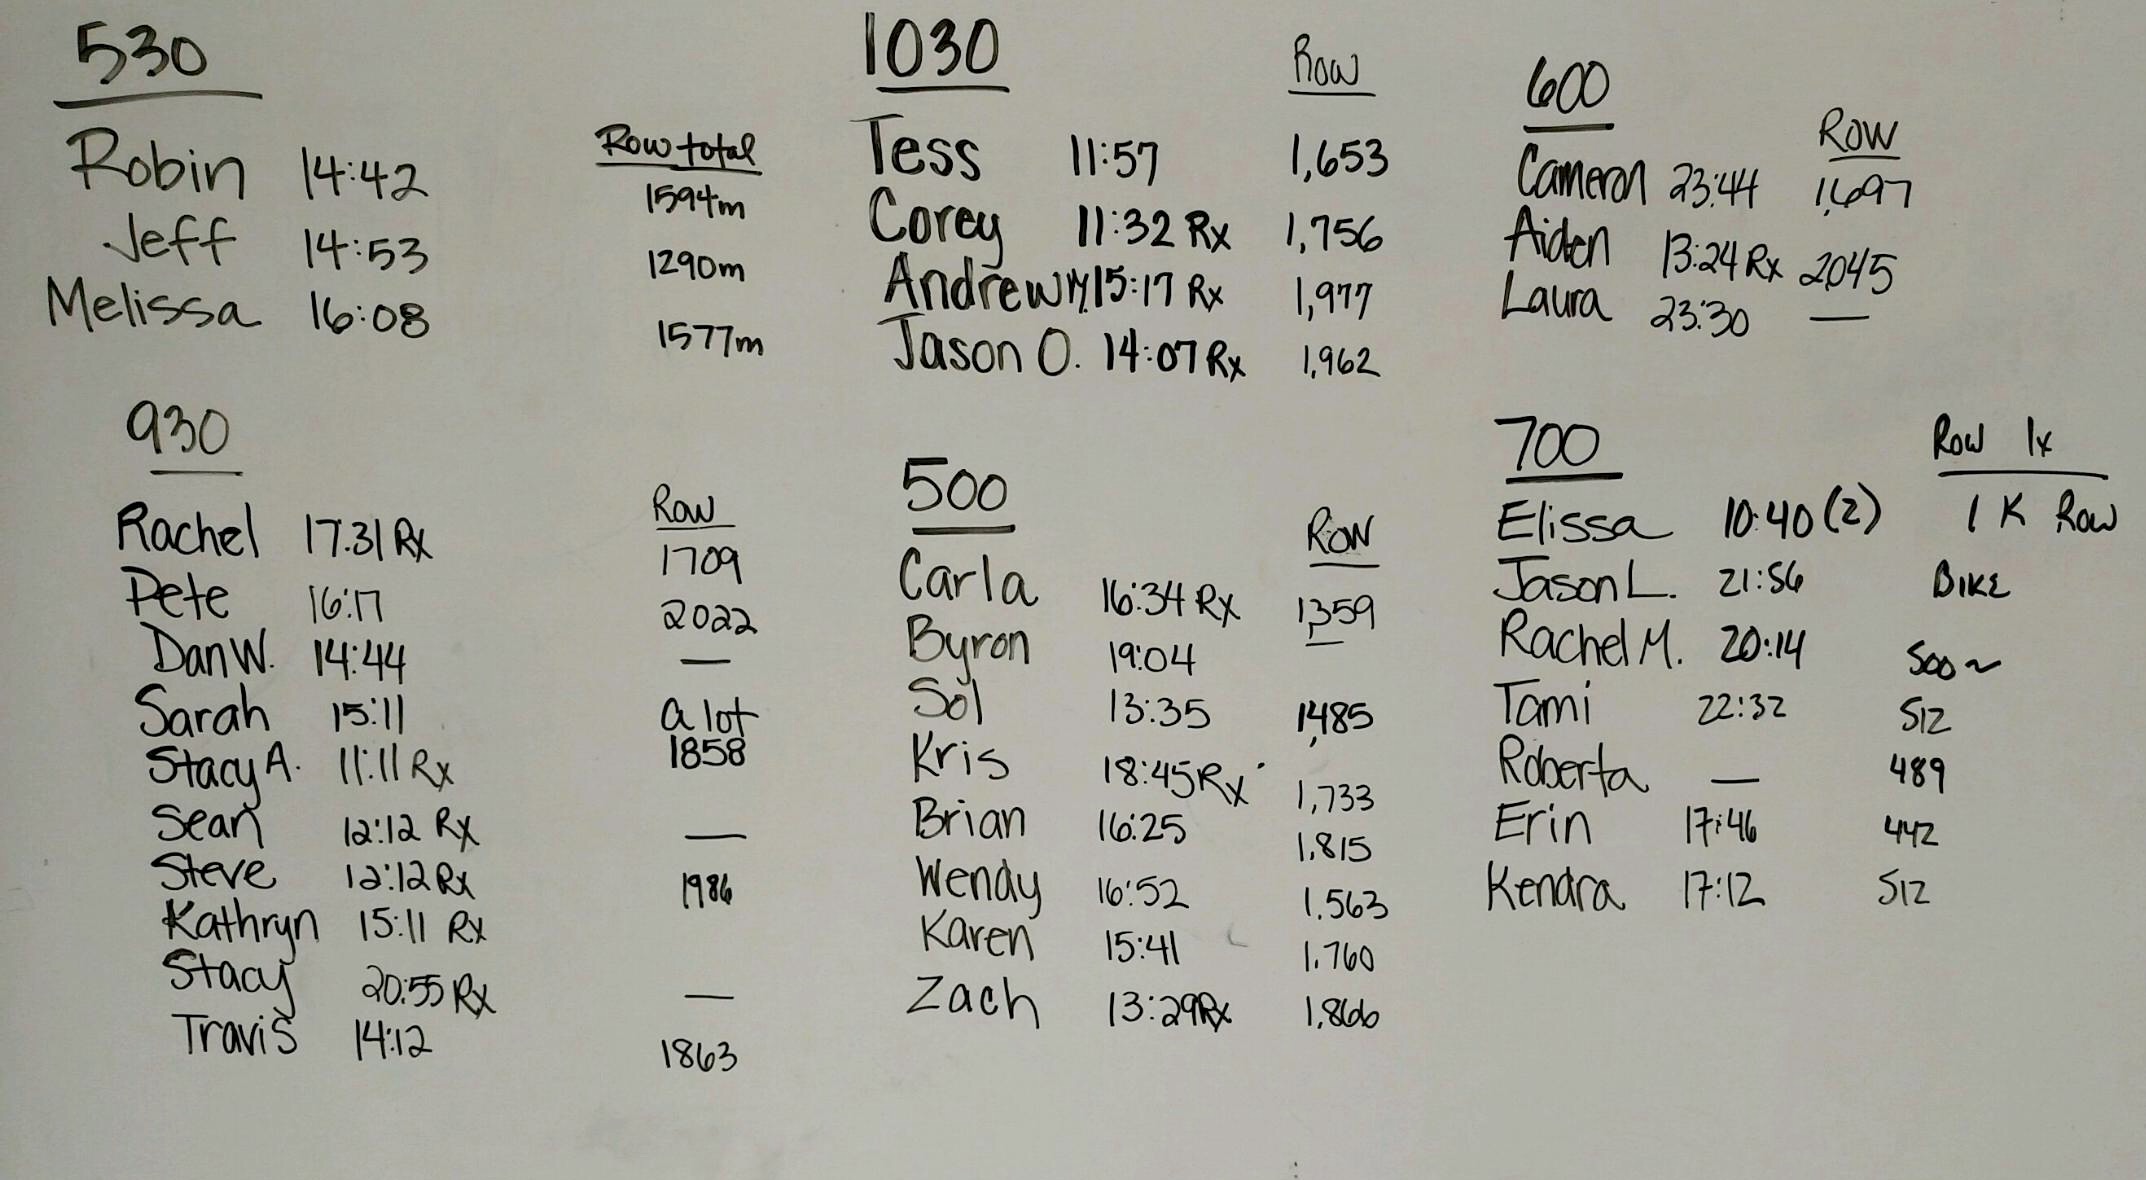 530
Row total
Robin 14:42 1594m
Jeff 14:53 1290m
Melissa 16:08 1577m
1030
Row
Tess 11:57 1,653
Corey 11:32 Rx 1,756
Andrew M. 15:17 Rx 1,977
Jason O. 14:07 Rx 1,962
600
Row
Cameron 23:44 1,697
Aiden 13:24 Rx 2045
Laura 23:30 —
930
Row
Rachel 17:31 Rx 1709
Pete 16:17 2022
Dan W. 14:44 —
Sarah 15:11 a lot
Stacy A. 11:11 Rx 1858
Sean 12:12 Rx —
Steve 12:12 Rx 1986
Kathryn 15:11 Rx
Stacy 20:55 Rx —
Travis 14:12 1863
500
Row
Carla 16:34 Rx 1,359
Byron 19:04 —
Sol 13:35 1,485
Kris 18:45 Rx 1,733
Brian 16:25 1,815
Wendy 16:52 1.563
Karen 15:41 1.760
Zach 13:29 Rx 1,866
700
Row 1x
Elissa 10:40 (2) 1 K Row
Jason L. 21:56 BIKE
Rachel M. 20:14 500 ~
Tami 22:32 512
Roberta — 489
Erin 17:46 442
Kendra 17:12 512